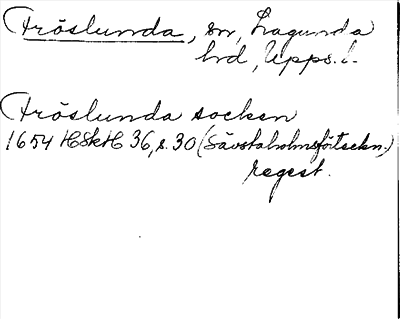 Fröslunda, sn, Lagunda
hd, Upps. l.
Fröslunda socken
1654 HSkH 36, s. 30 (Sävstaholmsförteckn.)
regest.